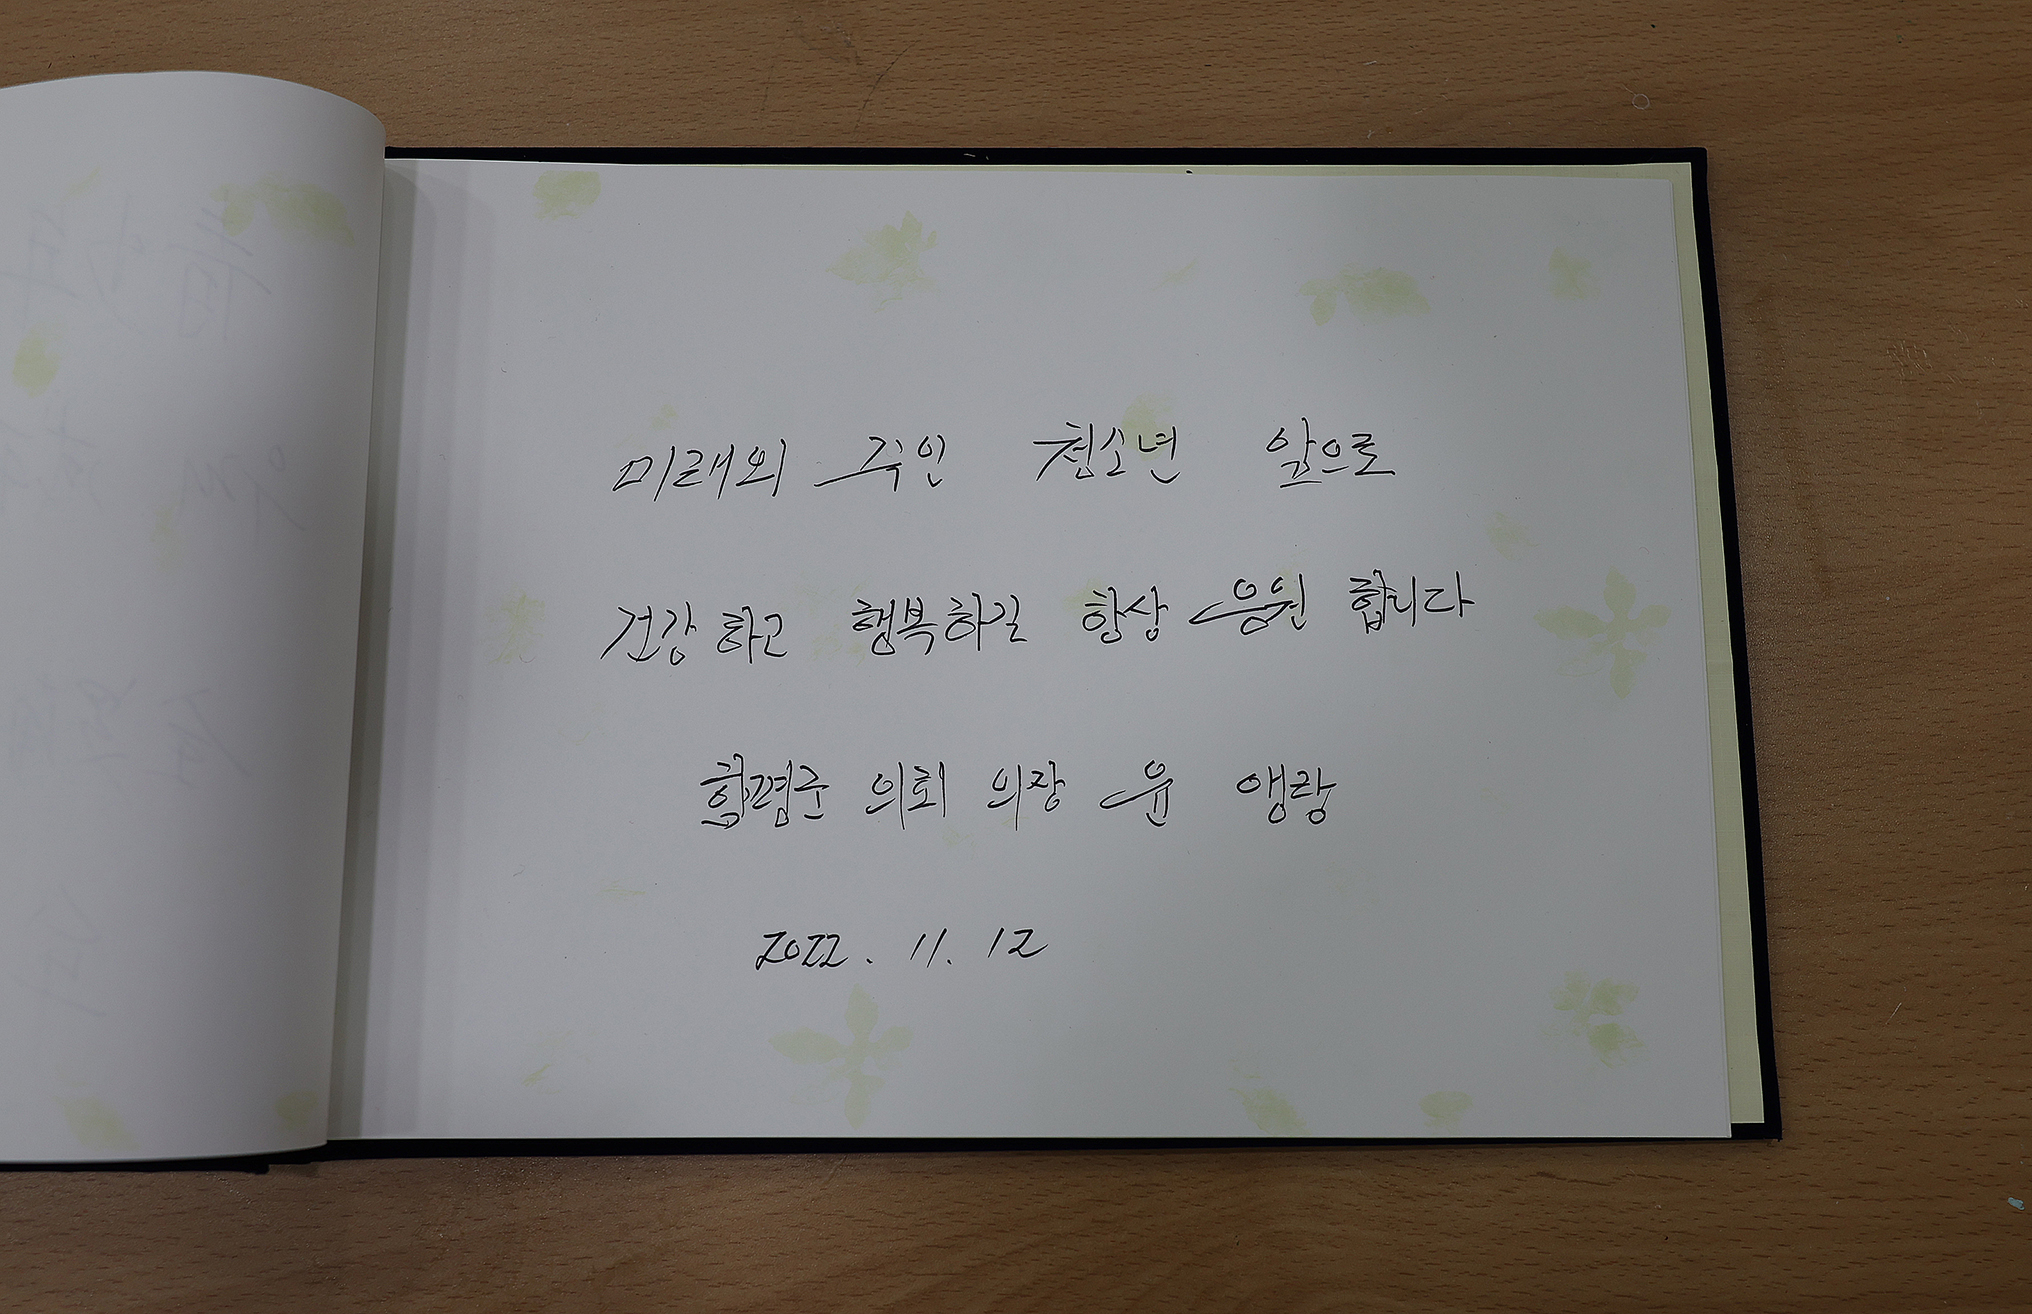 미래의 주인 청소년 앞으로
건강하고 행복하길 항상 응원 합니다
함평군 의회 의장 윤 앵랑
2022. 11. 12